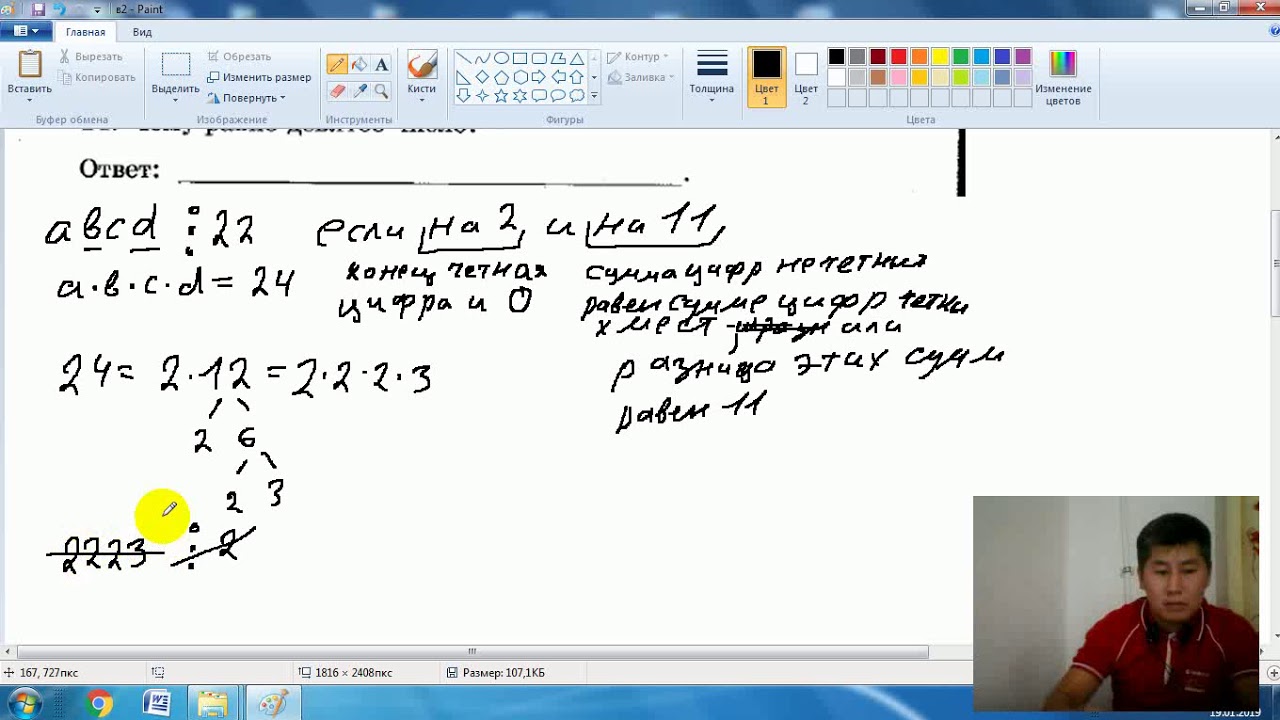 в2 - Paint
Главная Вид
Вырезать
Копировать
Вставить
Буфер обмена
Выделить
Обрезать
Изменить размер
Повернуть
Изображение
A
Инструменты
Кисти
Контур
Заливка
Фигуры
Толщина
Цвет 1
Цвет 2
Цвета
Изменение цветов
Ответ: .
авcd ⋮ 22 если на 2 и на 11
а·в·с·d = 24
конец четная
цифра и 0
сумма цифр нечетних
равен сумме цифр четни
х мест, или
разница этих сумм
равен 11
24 = 2·12 = 2·2·2·3
2 6
2 3
2223 ⋮ 2
167, 727пкс
1816 × 2408пкс
Размер: 107,1КБ
19.01.2019